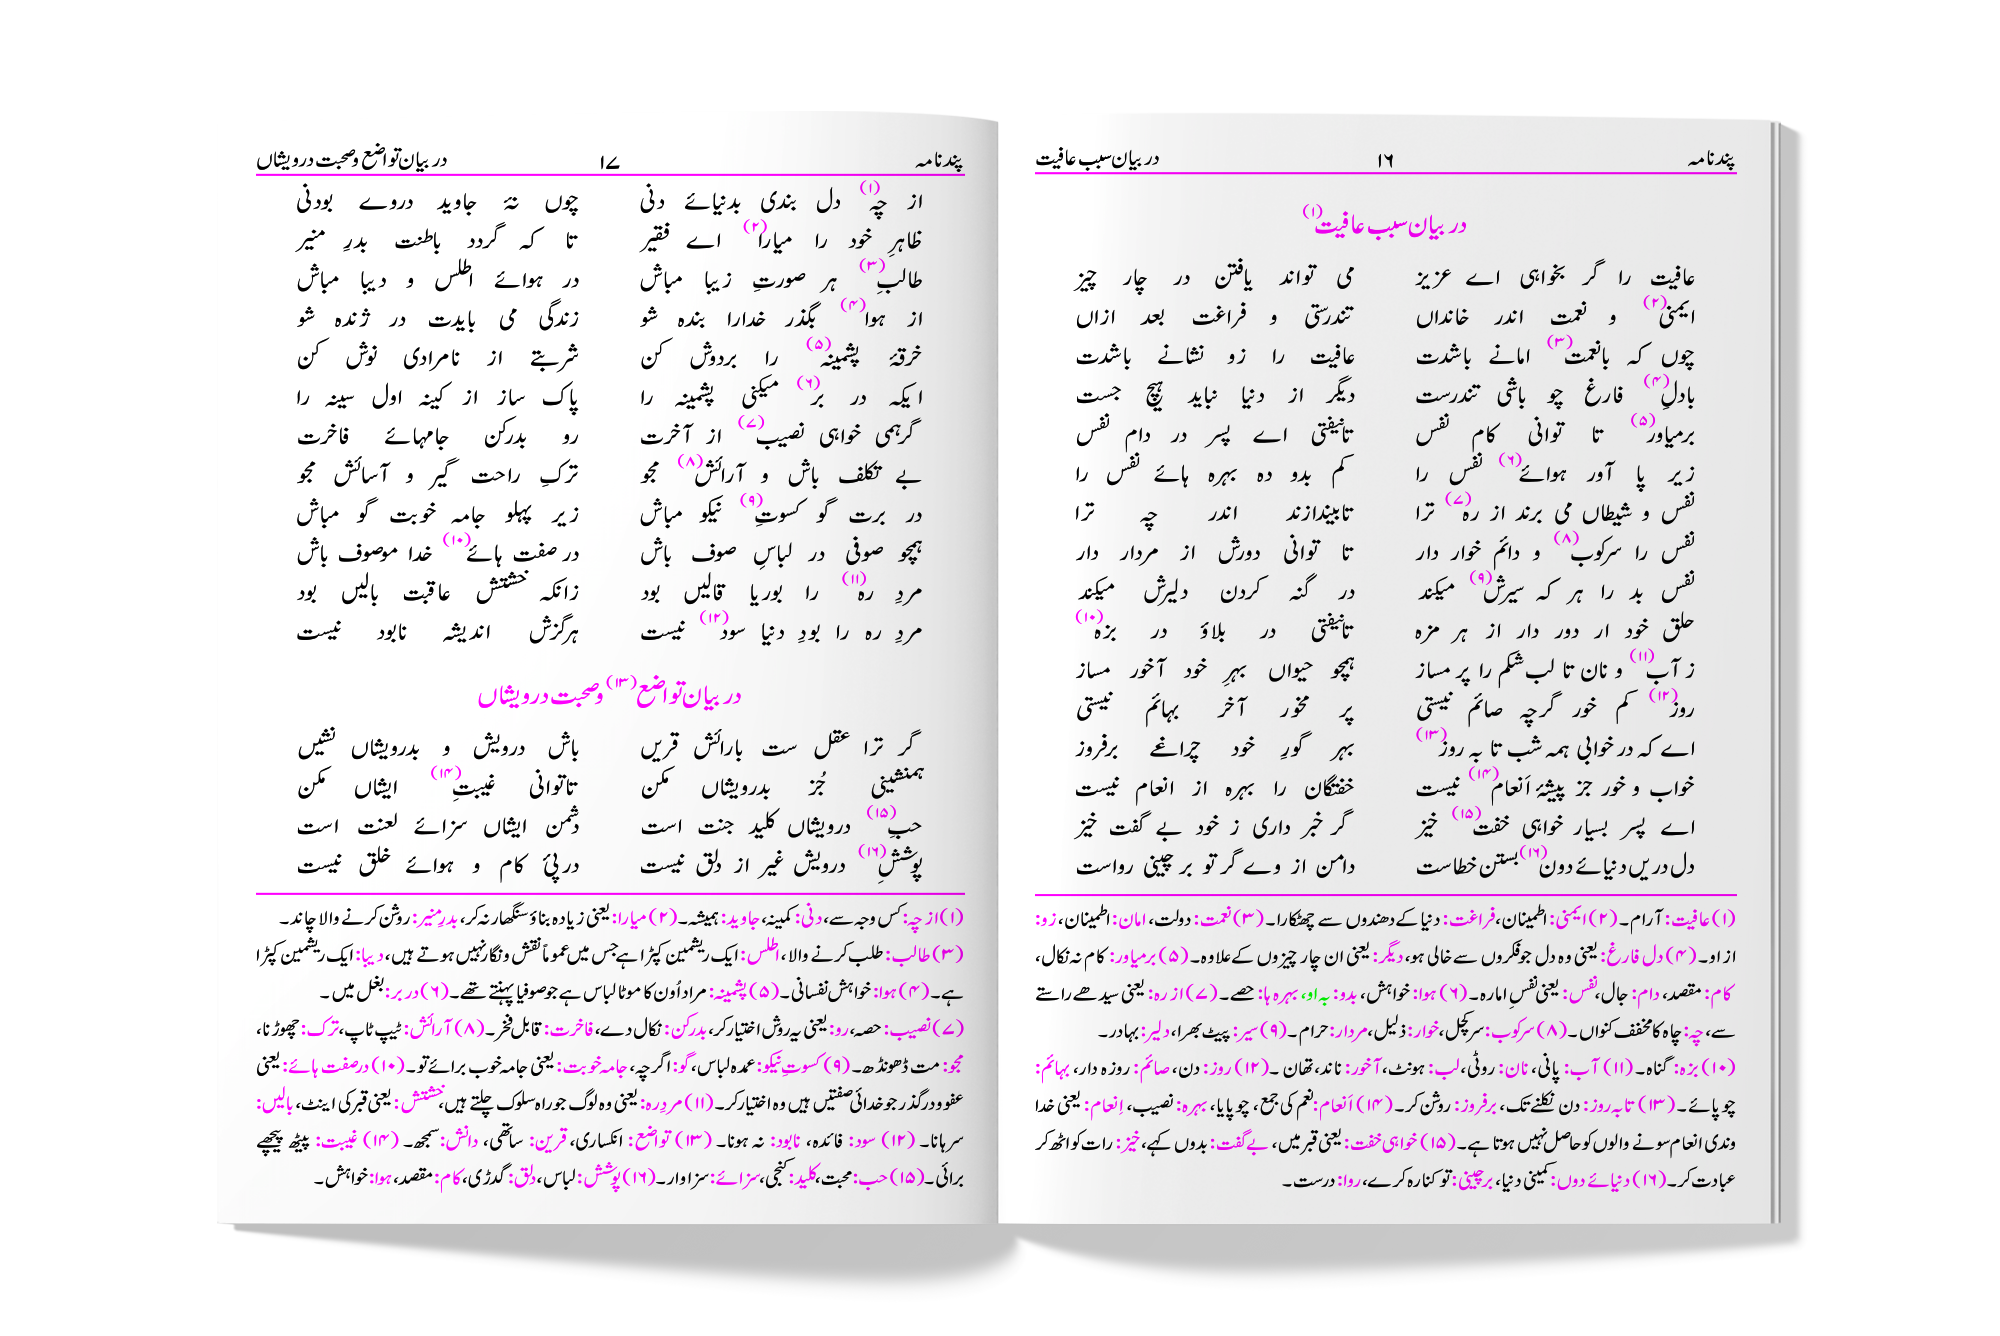 پندنامہ ۱۶ در بیان سبب عافیت
در بیان سبب عافیت(۱)
عافیت را گر بخواہی اے عزیز می تواند یافتن در چار چیز
ایمنی(۲) و نعمت اندر خانداں تندرستی و فراغت بعد ازاں
چوں کہ بانعمت(۳) امانے باشدت عافیت را زو نشانے باشدت
بادلِ(۴) فارغ چو باشی تندرست دیگر از دنیا نباید ہیچ جست
برمیاور(۵) تا توانی کام نفس تانیفتی اے پسر در دام نفس
زیر پا آور ہوائے(۶) نفس را کم بدو دہ بہرہ ہائے نفس را
نفس و شیطاں می برند از رہ(۷) ترا تابیندازند اندر چہ ترا
نفس را سرکوب(۸) و دائم خوار دار تا توانی دورش از مردار دار
نفس بد را ہر کہ سیرش(۹) میکند در گنہ کردن دلیرش میکند
حلق خود ار دور دار از ہر مزہ تانیفتی در بلاؤ در بزہ(۱۰)
ز آب(۱۱) و نان تا لب شکم را پر مساز ہمچو حیواں بہرِ خود آخور مساز
روز(۱۲) کم خور گرچہ صائم نیستی پر مخور آخر بہائم نیستی
اے کہ در خوابی ہمہ شب تا بہ روز(۱۳) بہر گورِ خود چراغے برفروز
خواب و خور جز پیشۂ اَنعام(۱۴) نیست خفتگان را بہرہ از انعام نیست
اے پسر بسیار خواہی خفت(۱۵) خیز گر خبر داری ز خود بے گفت خیز
دل دریں دنیائے دون(۱۶) بستن خطاست دامن از وے گر تو بر چینی رواست
(۱) عافیت: آرام۔ (۲) ایمنی: اطمینان، فراغت: دنیا کے دھندوں سے چھٹکارا۔ (۳) نعمت: دولت، امان: اطمینان، زو:
از او۔ (۴) دل فارغ: یعنی وہ دل جو فکروں سے خالی ہو، دیگر: یعنی ان چار چیزوں کے علاوہ۔ (۵) برمیاور: کام نہ نکال،
کام: مقصد، دام: جال، نفس: یعنی نفسِ امارہ۔ (۶) ہوا: خواہش، بدو: بہ او، بہرہ ہا: حصے۔ (۷) از رہ: یعنی سیدھے راستے
سے، چہ: چاہ کا مخفف کنواں۔ (۸) سرکوب: سر کچل، خوار: ذلیل، مردار: حرام۔ (۹) سیر: پیٹ بھرا، دلیر: بہادر۔
(۱۰) بزہ: گناہ۔ (۱۱) آب: پانی، نان: روٹی، لب: ہونٹ، آخور: ناند، تھان۔ (۱۲) روز: دن، صائم: روزہ دار، بہائم:
چوپائے۔ (۱۳) تا بہ روز: دن نکلنے تک، برفروز: روشن کر۔ (۱۴) اَنعام: نعم کی جمع، چوپایا، بہرہ: نصیب، اِنعام: یعنی خدا
وندی انعام سونے والوں کو حاصل نہیں ہوتا ہے۔ (۱۵) خواہی خفت: یعنی قبر میں، بے گفت: بدوں کہے، خیز: رات کو اٹھ کر
عبادت کر۔ (۱۶) دنیائے دوں: کمینی دنیا، بر چینی: تو کنارہ کرے، روا: درست۔
پندنامہ ۱۷ در بیان تواضع وصحبت درویشاں
از چہ(۱) دل بندی بدنیائے دنی چوں نۂ جاوید دروے بودنی
ظاہرِ خود را میارا(۲) اے فقیر تا کہ گردد باطنت بدرِ منیر
طالبِ(۳) ہر صورتِ زیبا مباش در ہوائے اطلس و دیبا مباش
از ہوا(۴) بگذر خدارا بندہ شو زندگی می بایدت در ژندہ شو
خرقۂ پشمینہ(۵) را بردوش کن شربتے از نامرادی نوش کن
ایکہ در بر(۶) میکنی پشمینہ را پاک ساز از کینہ اول سینہ را
گرہمی خواہی نصیب(۷) از آخرت رو بدرکن جامہائے فاخرت
بے تکلف باش و آرائش(۸) مجو ترکِ راحت گیر و آسائش مجو
در برت گو کسوتِ(۹) نیکو مباش زیر پہلو جامہ خوبت گو مباش
ہمچو صوفی در لباسِ صوف باش در صفت ہائے(۱۰) خدا موصوف باش
مردِ رہ(۱۱) را بوریا قالیں بود زانکہ خشتش عاقبت بالیں بود
مردِ رہ را بودِ دنیا سود(۱۲) نیست ہرگزش اندیشہ نابود نیست
در بیان تواضع(۱۳) وصحبت درویشاں
گر ترا عقل ست بارائش قریں باش درویش و بدرویشاں نشیں
ہمنشینی جُز بدرویشاں مکن تاتوانی غیبتِ(۱۴) ایشاں مکن
حبِ(۱۵) درویشاں کلید جنت است دشمن ایشاں سزائے لعنت است
پوششِ(۱۶) درویش غیر از دلق نیست در پئ کام و ہوائے خلق نیست
(۱) از چہ: کس وجہ سے، دنی: کمینہ، جاوید: ہمیشہ۔ (۲) میارا: یعنی زیادہ بناؤ سنگھار نہ کر، بدرِ منیر: روشن کرنے والا چاند۔
(۳) طالب: طلب کرنے والا، اطلس: ایک ریشمین کپڑا ہے جس میں عموماً نقش و نگار نہیں ہوتے ہیں، دیبا: ایک ریشمین کپڑا
ہے۔ (۴) ہوا: خواہش نفسانی۔ (۵) پشمینہ: مراد اُون کا موٹا لباس ہے جو صوفیا پہنتے تھے۔ (۶) در بر: بغل میں۔
(۷) نصیب: حصہ، رو: یعنی یہ روش اختیار کر، بدرکن: نکال دے، فاخرت: قابل فخر۔ (۸) آرائش: ٹیپ ٹاپ، ترک: چھوڑنا،
مجو: مت ڈھونڈھ۔ (۹) کسوتِ نیکو: عمدہ لباس، گو: اگرچہ، جامہ خوبت: یعنی جامہ خوب برائے تو۔ (۱۰) در صفت ہائے: یعنی
عفو و درگذر جو خدائی صفتیں ہیں وہ اختیار کر۔ (۱۱) مردِ رہ: یعنی وہ لوگ جو راہ سلوک چلتے ہیں، خشتش: یعنی قبر کی اینٹ، بالیں:
سرہانا۔ (۱۲) سود: فائدہ، نابود: نہ ہونا۔ (۱۳) تواضع: انکساری، قرین: ساتھی، دانش: سمجھ۔ (۱۴) غیبت: پیٹھ پیچھے
برائی۔ (۱۵) حب: محبت، کلید: کنجی، سزائے: سزاوار۔ (۱۶) پوشش: لباس، دلق: گدڑی، کام: مقصد، ہوا: خواہش۔